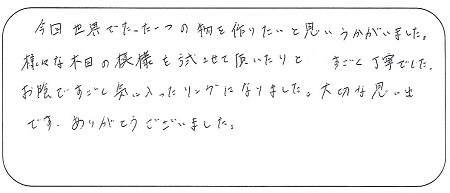 今回世界でたった一つの物を作りたいと思いうかがいました。
様々な木目の模様を試させて頂いたりと すごく丁寧でした。
お陰ですごく気に入ったリングになりました。大切な思い出
です。ありがとうございました。